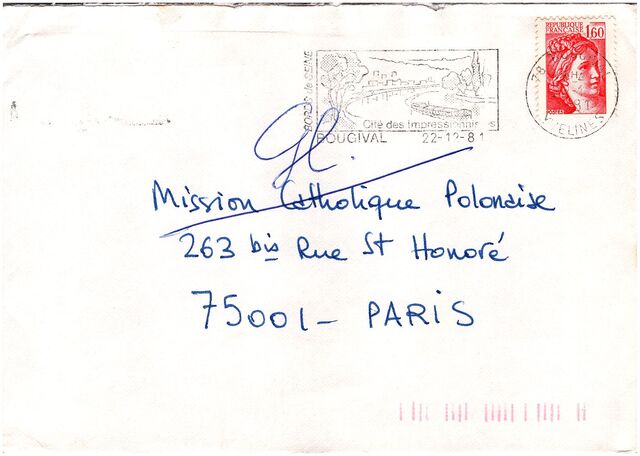 REPUBLIQUE
FRANÇAISE 1,60
BORDS de SEINE
Cité des Impressionnistes
BOUGIVAL 22-12-81
78
YVELINES
Mission Catholique Polonaise
263 bis Rue St Honoré
75001 - PARIS